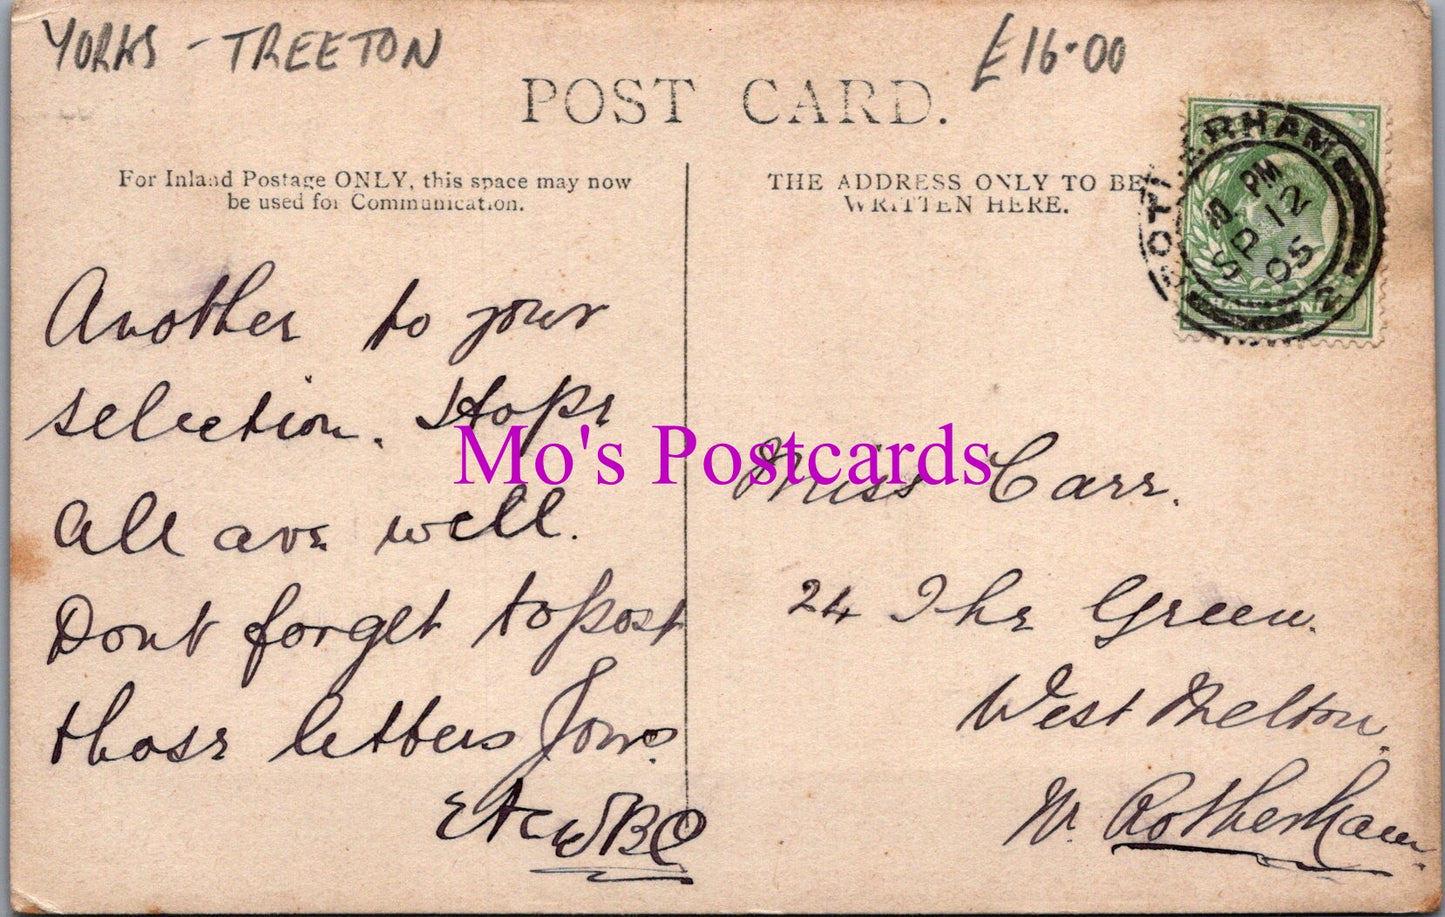 YORKS - TREETON
£16.00
POST CARD.
For Inland Postage ONLY, this space may now
be used for Communication.
THE ADDRESS ONLY TO BE
WRITTEN HERE.
ROTHERHAM
10 PM
SP 12
05
2
Another to your
selection. Hope
all are well.
Dont forget to post
those letters Yours
Etc WBC
Mo's Postcards
Miss Carr.
24 The Green.
West Melton.
Nr. Rotherham.